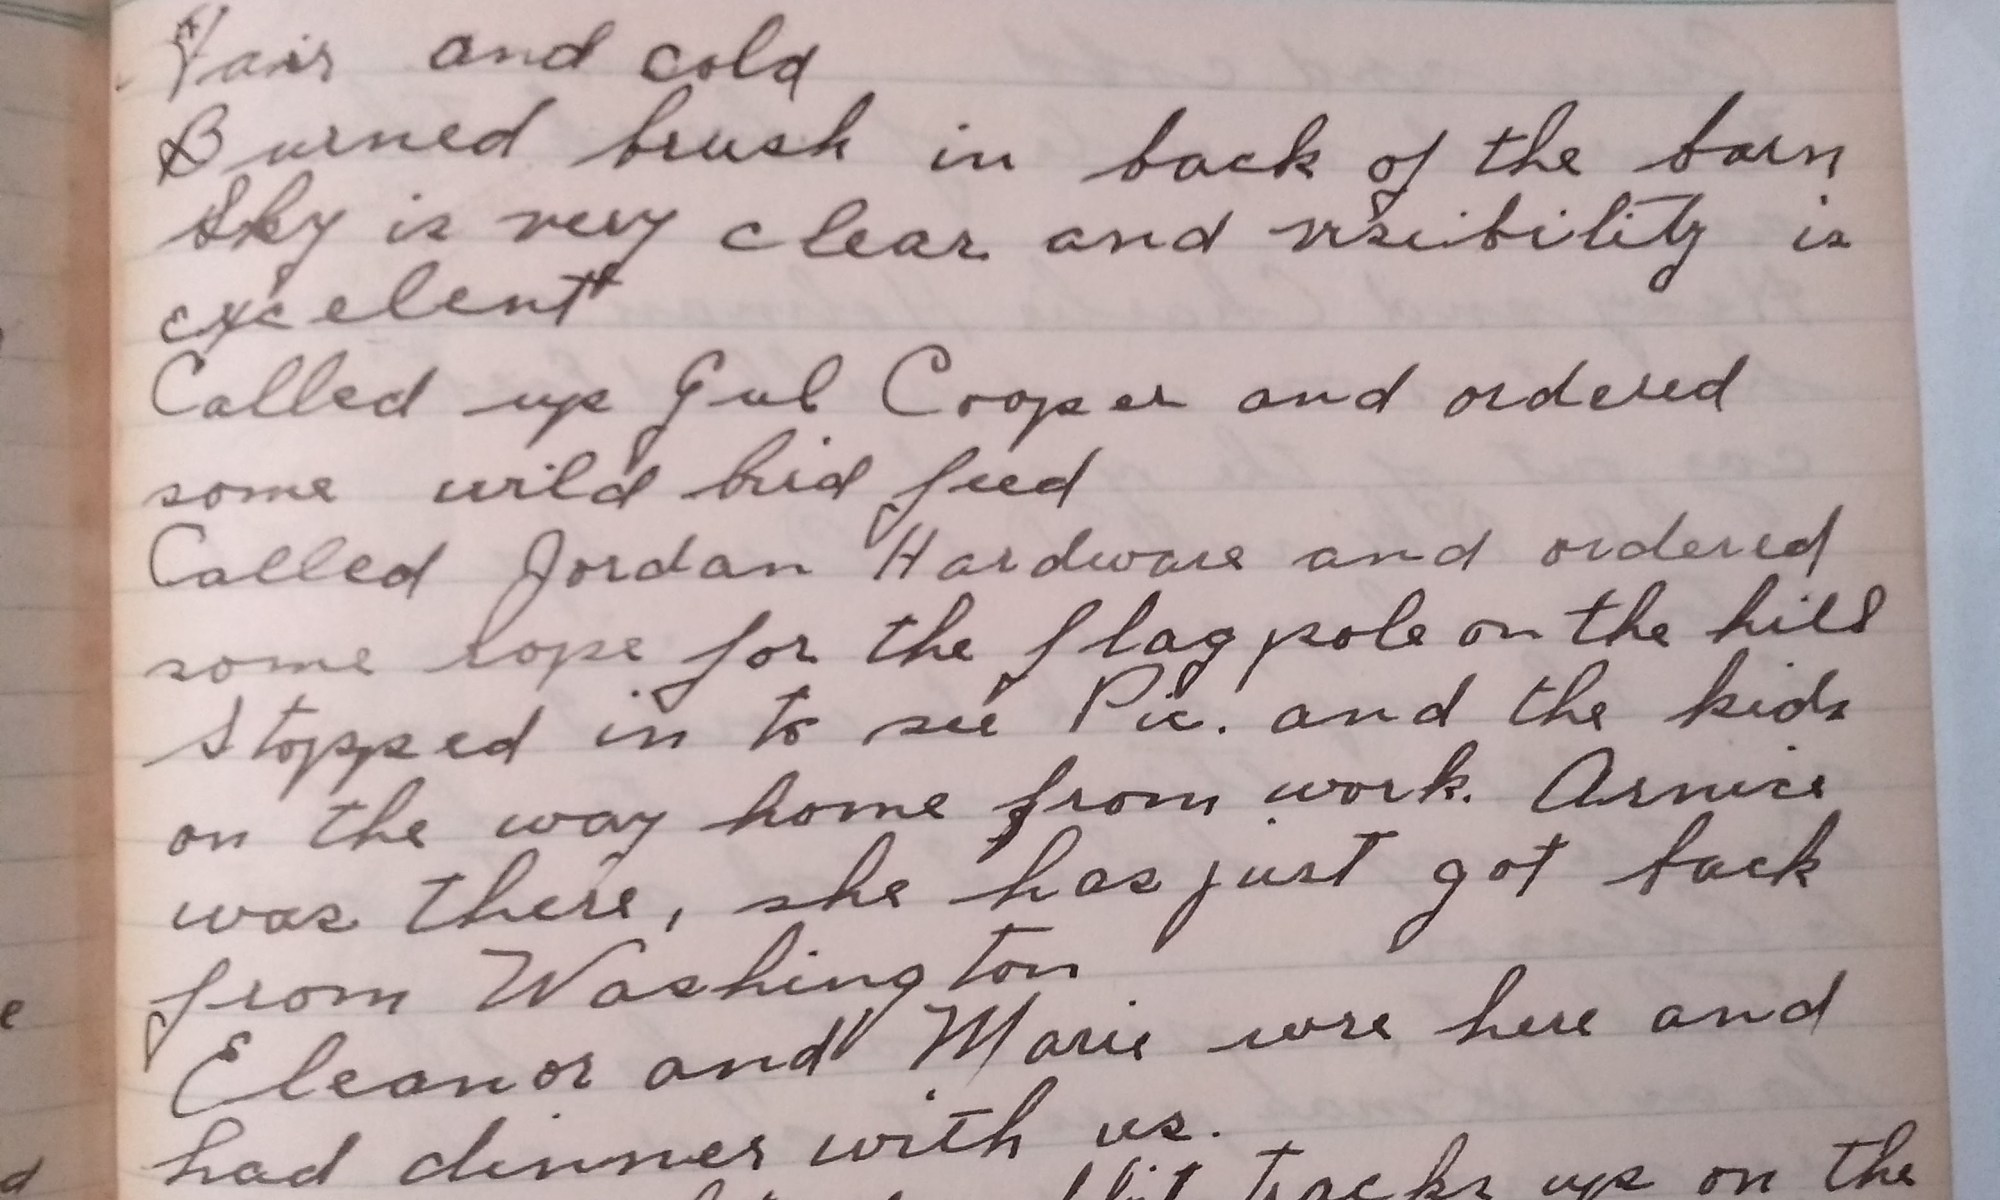 Fair and cold
Burned brush in back of the barn
Sky is very clear and visibility is
excelent
Called up Cooper and ordered
some wild bird feed
Called Jordan Hardware and ordered
some rope for the flag pole on the hill
Stopped in to see Pic. and the kids
on the way home from work. Arnice
was there, she has just got back
from Washington
Eleanor and Marie wre here and
had dinner with us.
tracks up on the